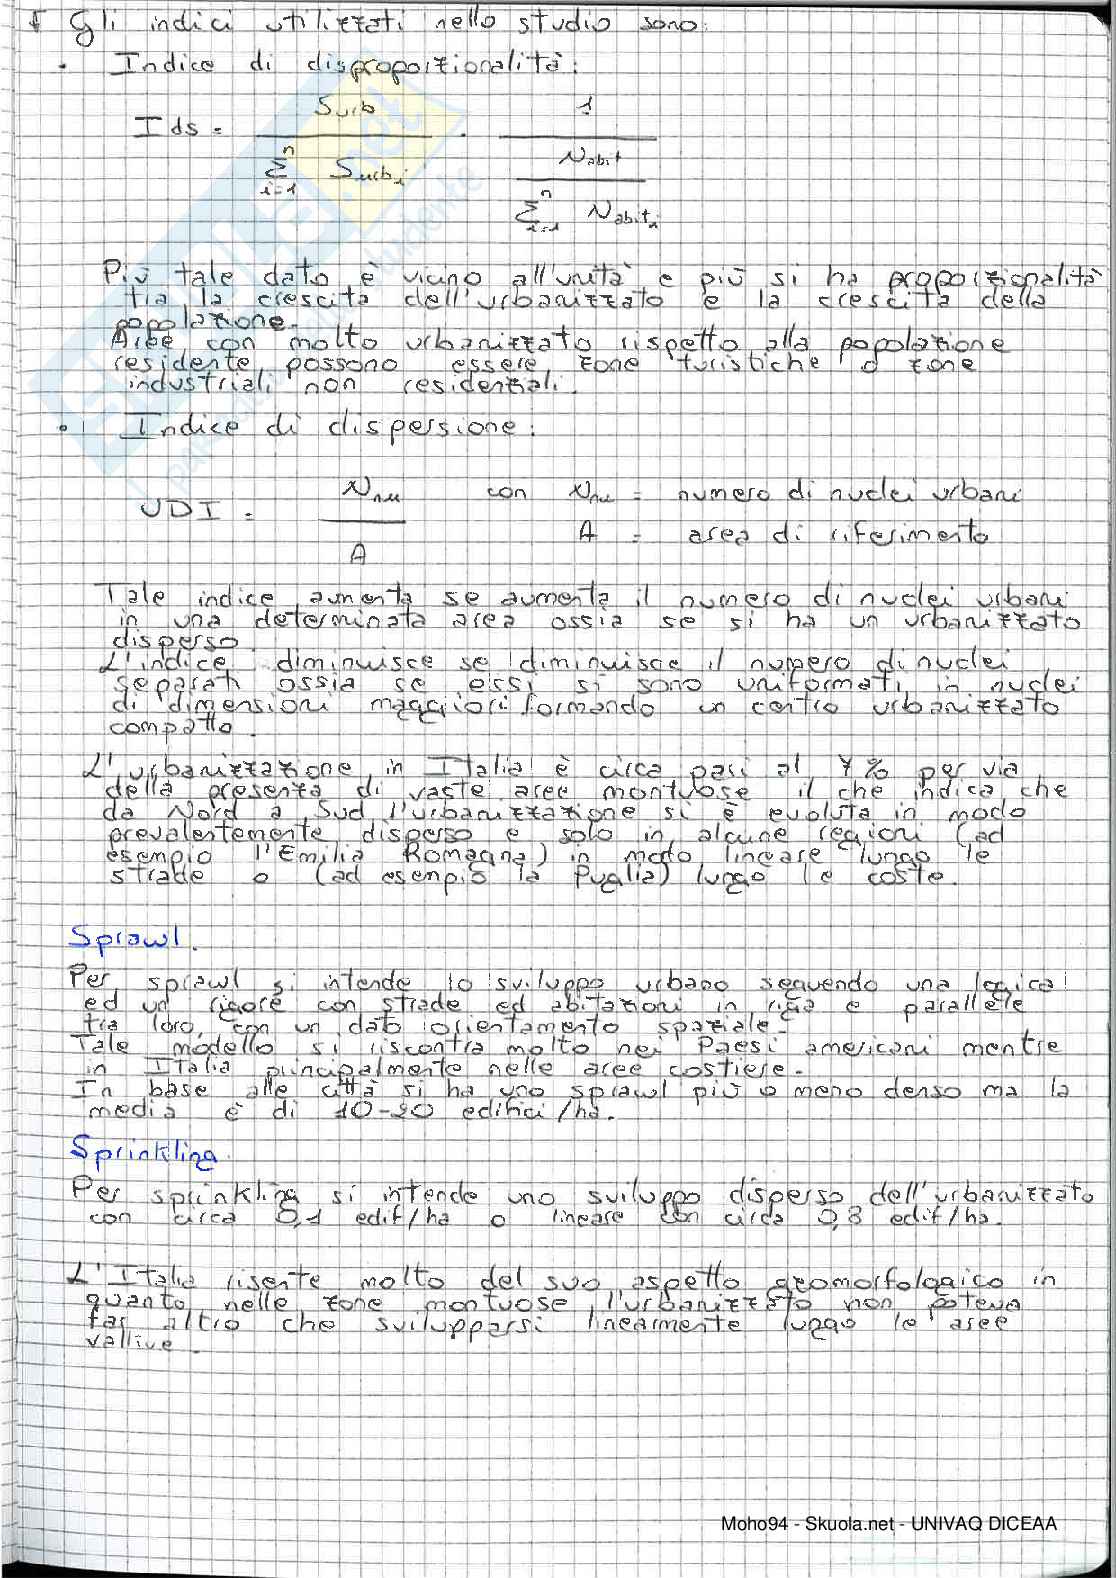 Gli indici utilizzati nello studio sono:
• Indice di disproporzionalità:
Ids = Surb / Σ i=1 n Surb i · 1 / (Nabit / Σ i=1 n Nabit i)
Più tale dato è vicino all'unità e più si ha proporzionalità
tra la crescita dell'urbanizzato e la crescita della
popolazione.
Aree con molto urbanizzato rispetto alla popolazione
residente, possono essere zone turistiche o zone
industriali non residenziali.
• Indice di dispersione:
UDI = Nnu / A con Nnu = numero di nuclei urbani
A = area di riferimento
Tale indice aumenta se aumenta il numero di nuclei urbani
in una determinata area ossia se si ha un urbanizzato
disperso.
L'indice diminuisce se diminuisce il numero di nuclei
separati ossia se essi si sono uniformati in nuclei
di dimensioni maggiori formando un centro urbanizzato
compatto.
L'urbanizzazione in Italia è circa pari al 7% per via
della presenza di vaste aree montuose il che indica che
da Nord a Sud l'urbanizzazione si è evoluta in modo
prevalentemente disperso e solo in alcune regioni (ad
esempio l'Emilia Romagna) in modo lineare lungo le
strade o (ad esempio la Puglia) lungo le coste.
Sprawl
Per sprawl si intende lo sviluppo urbano seguendo una logica
ed un rigore con strade ed abitazioni in riga e parallele
tra loro, con un dato orientamento spaziale.
Tale modello si riscontra molto nei Paesi americani mentre
in Italia principalmente nelle aree costiere.
In base alle città si ha uno sprawl più o meno denso ma la
media è di 10-20 edifici/ha.
Sprinkling
Per sprinkling si intende uno sviluppo disperso dell'urbanizzato
con circa 0,1 edif/ha o lineare con circa 0,8 edif/ha.
L'Italia risente molto del suo aspetto geomorfologico in
quanto, nelle zone montuose, l'urbanizzato non poteva
far altro che svilupparsi linearmente lungo le aree
vallive.
Moho94 - Skuola.net - UNIVAQ DICEAA